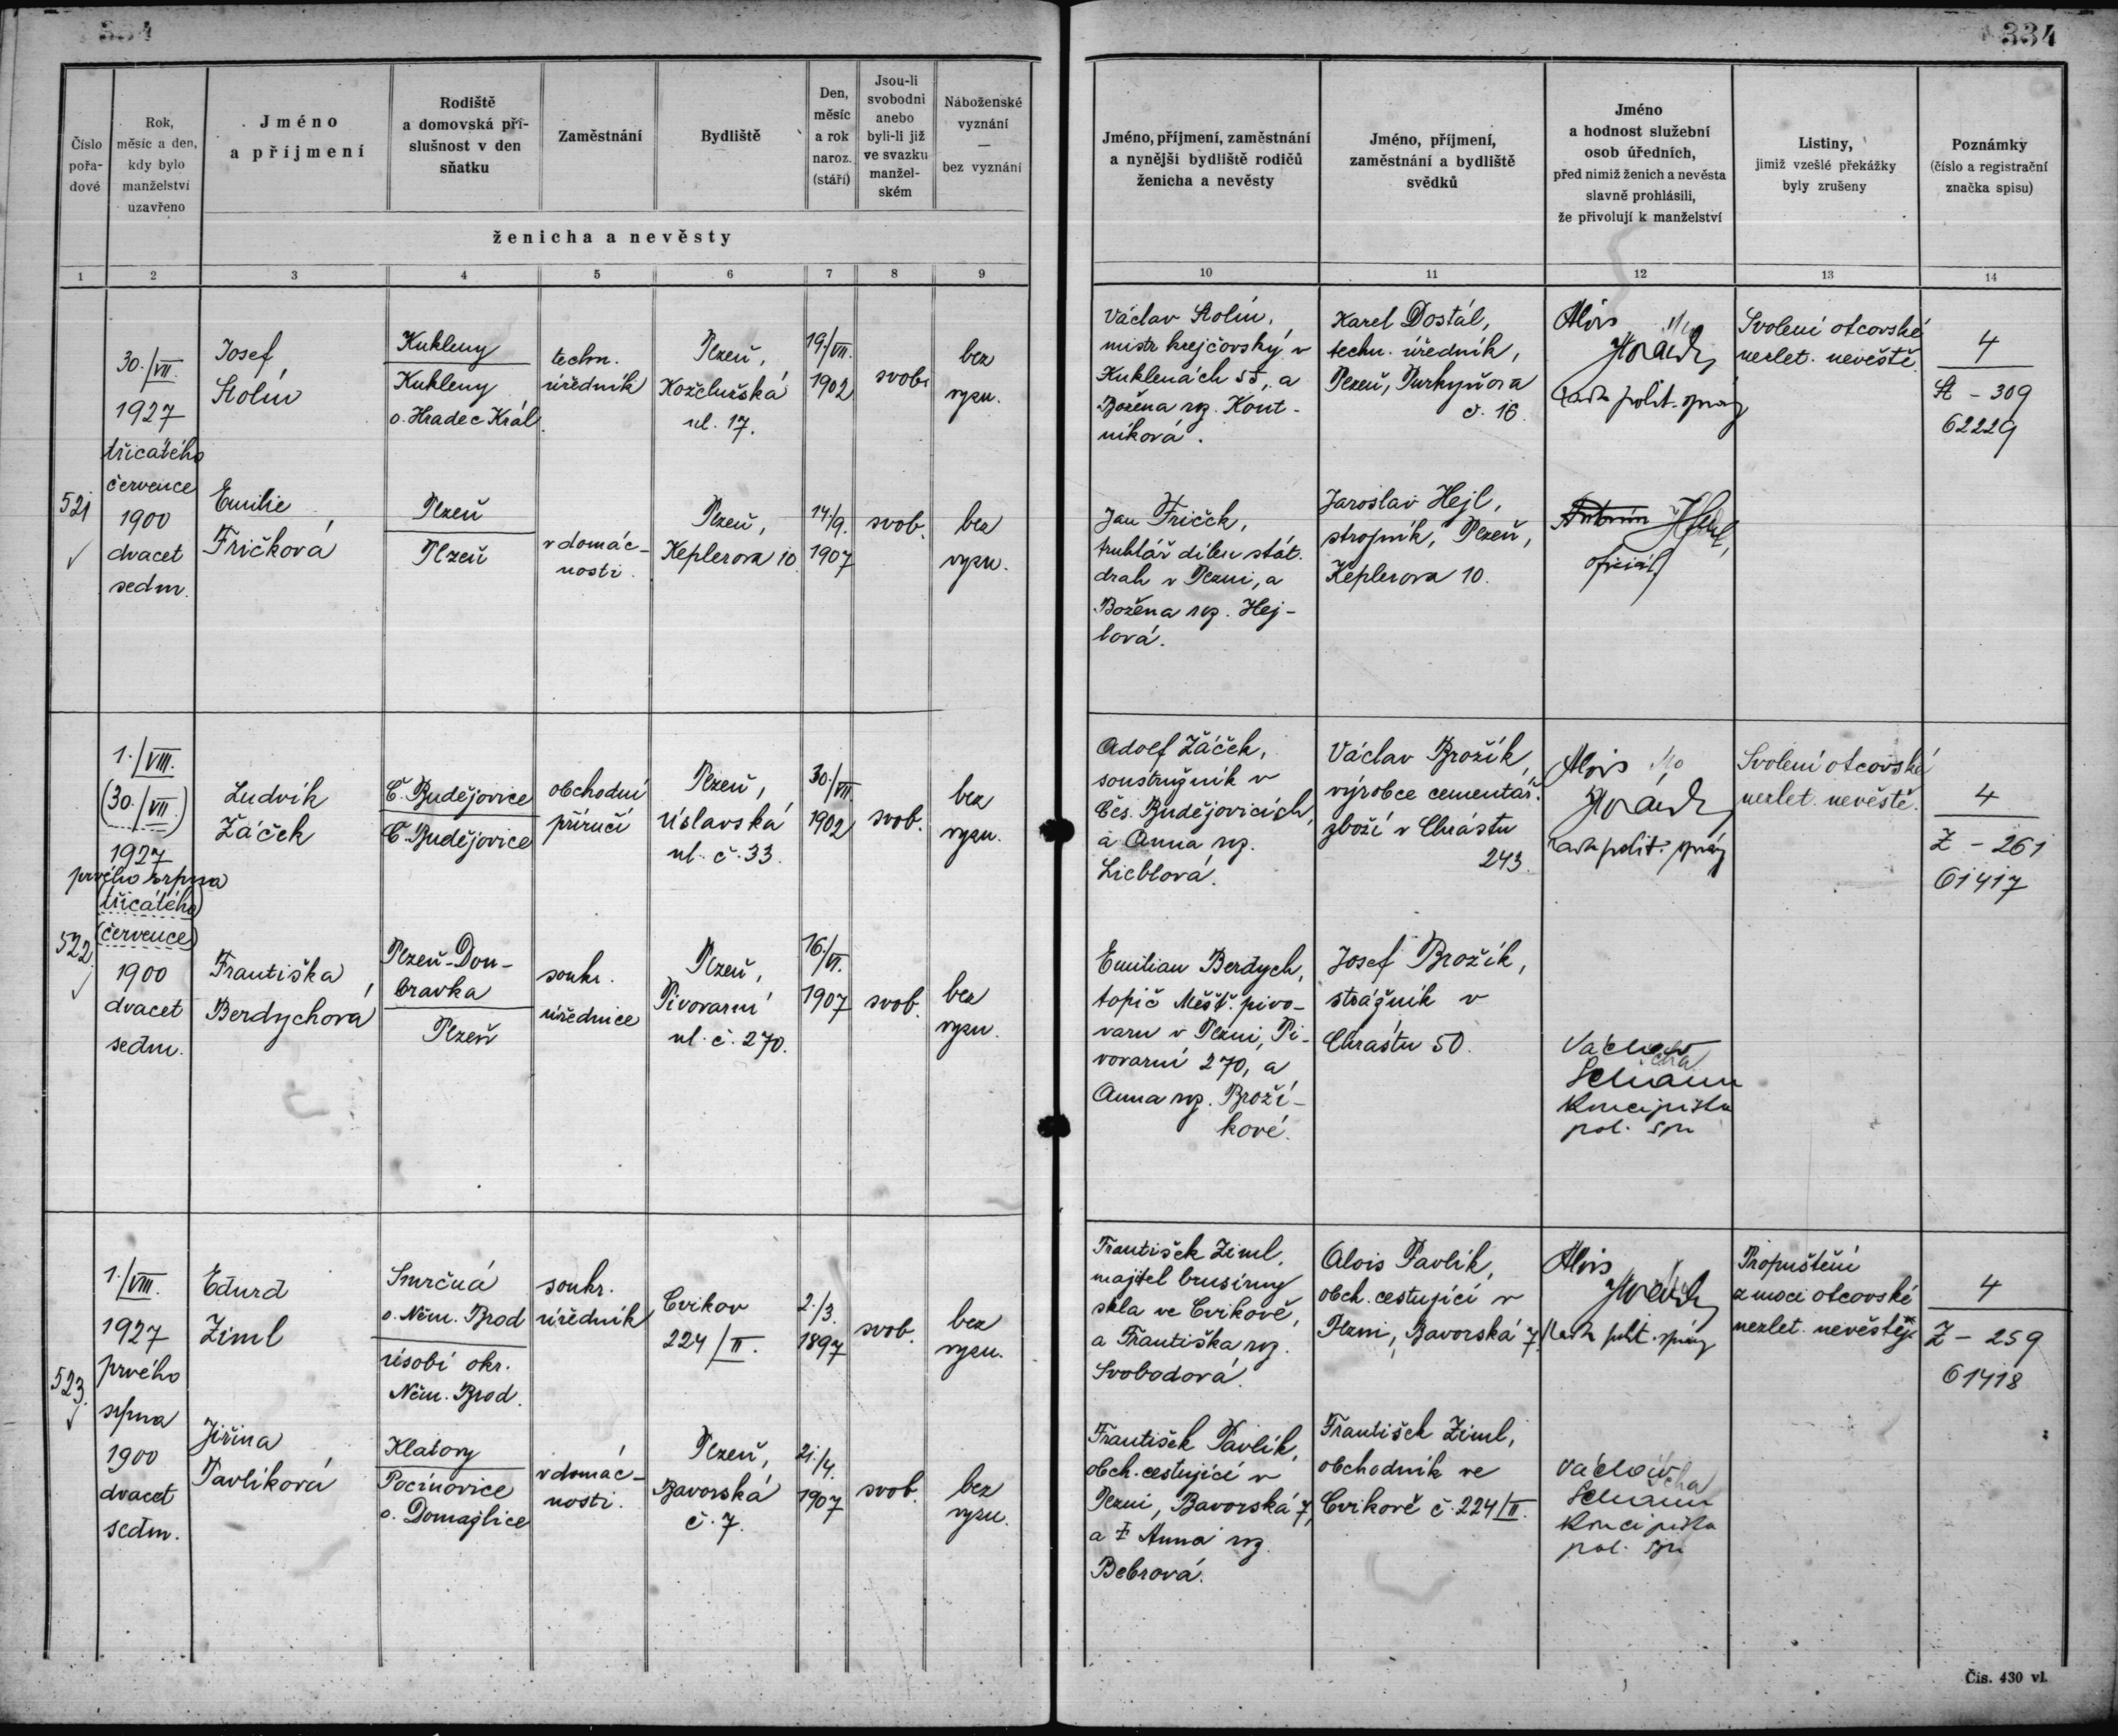 334
334
Číslo pořadové
Rok, měsíc a den, kdy bylo manželství uzavřeno
Jméno a příjmení
Rodiště a domovská příslušnost v den sňatku
Zaměstnání
Bydliště
Den, měsíc a rok naroz. (stáří)
Jsou-li svobodni anebo byli-li již ve svazku manželském
Náboženské vyznání — bez vyznání
ženicha a nevěsty
Jméno, příjmení, zaměstnání a nynější bydliště rodičů ženicha a nevěsty
Jméno, příjmení, zaměstnání a bydliště svědků
Jméno a hodnost služební osob úředních, před nimiž ženich a nevěsta slavně prohlásili, že přivolují k manželství
Listiny, jimiž vzešlé překážky byly zrušeny
Poznámky (číslo a registrační značka spisu)
1 2 3 4 5 6 7 8 9 10 11 12 13 14
521
30./VII.
1927
třicátého
července
1900
dvacet
sedm.
Josef
Stolín
Kukleny
Kukleny
o. Hradec Král.
techn.
úředník
Plzeň,
Koželužská
ul. 17.
19./VII.
1902
svob.
bez
vyzn.
Václav Stolín,
mistr krejčovský v
Kuklenách 55, a
Božena roz. Kout-
níková.
Karel Dostál,
techn. úředník,
Plzeň, Purkyňova
č. 16.
Alois
rada polit. správy
Svolení otcovské
nezlet. nevěstě.
4
St - 309
62229
Emilie
Fričková
Plzeň
Plzeň
v domác-
nosti.
Plzeň,
Keplerova 10.
14./9.
1907
svob.
bez
vyzn.
Jan Friček,
truhlář dílen stát.
drah v Plzni, a
Božena roz. Hej-
lová.
Jaroslav Hejl,
strojník, Plzeň,
Keplerova 10.
oficiál
522
1./VIII.
(30./VII.)
1927
prvého srpna
(třicátého)
(července)
1900
dvacet
sedm.
Ludvík
Žáček
Č. Budějovice
Č. Budějovice
obchodní
příručí
Plzeň,
Úslavská
ul. č. 33.
30./VII.
1902
svob.
bez
vyzn.
Adolf Žáček,
soustružník v
Čes. Budějovicích,
a Anna roz.
Lieblová.
Václav Brožík,
výrobce cementář.
zboží v Chrástu
243.
Alois
rada polit. správy
Svolení otcovské
nezlet. nevěstě.
4
Z - 261
61417
Františka
Berdychová
Plzeň-Dou-
bravka
Plzeň
soukr.
úřednice
Plzeň,
Pivovarní
ul. č. 270.
16./VI.
1907
svob.
bez
vyzn.
Emilian Berdych,
topič Měšť. pivo-
varu v Plzni, Pi-
vovarní 270, a
Anna roz. Broží-
kové.
Josef Brožík,
strážník v
Chrástu 50.
Václav
koncipista
pol. spr.
523.
1./VIII.
1927
prvého
srpna
1900
dvacet
sedm.
Edurd
Ziml
Smrčná
o. Něm. Brod
Úsobí okr.
Něm. Brod.
soukr.
úředník
Cvikov
224/II.
2./3.
1897
svob.
bez
vyzn.
František Ziml,
majitel brusírny
skla ve Cvikově,
a Františka roz.
Svobodová.
Alois Pavlík,
obch. cestující v
Plzni, Bavorská 7.
Alois
rada polit. správy
Propuštění
z moci otcovské
nezlet. nevěstě
4
Z - 259
61418
Jiřina
Pavlíková
Klatovy
Pocínovice
o. Domažlice
v domác-
nosti.
Plzeň,
Bavorská
č. 7.
21./4.
1907
svob.
bez
vyzn.
František Pavlík,
obch. cestující v
Plzni, Bavorská 7,
a † Anna roz.
Bebrová.
František Ziml,
obchodník ve
Cvikově č. 224/II.
Václav
koncipista
pol. spr.
Čís. 430 vl.